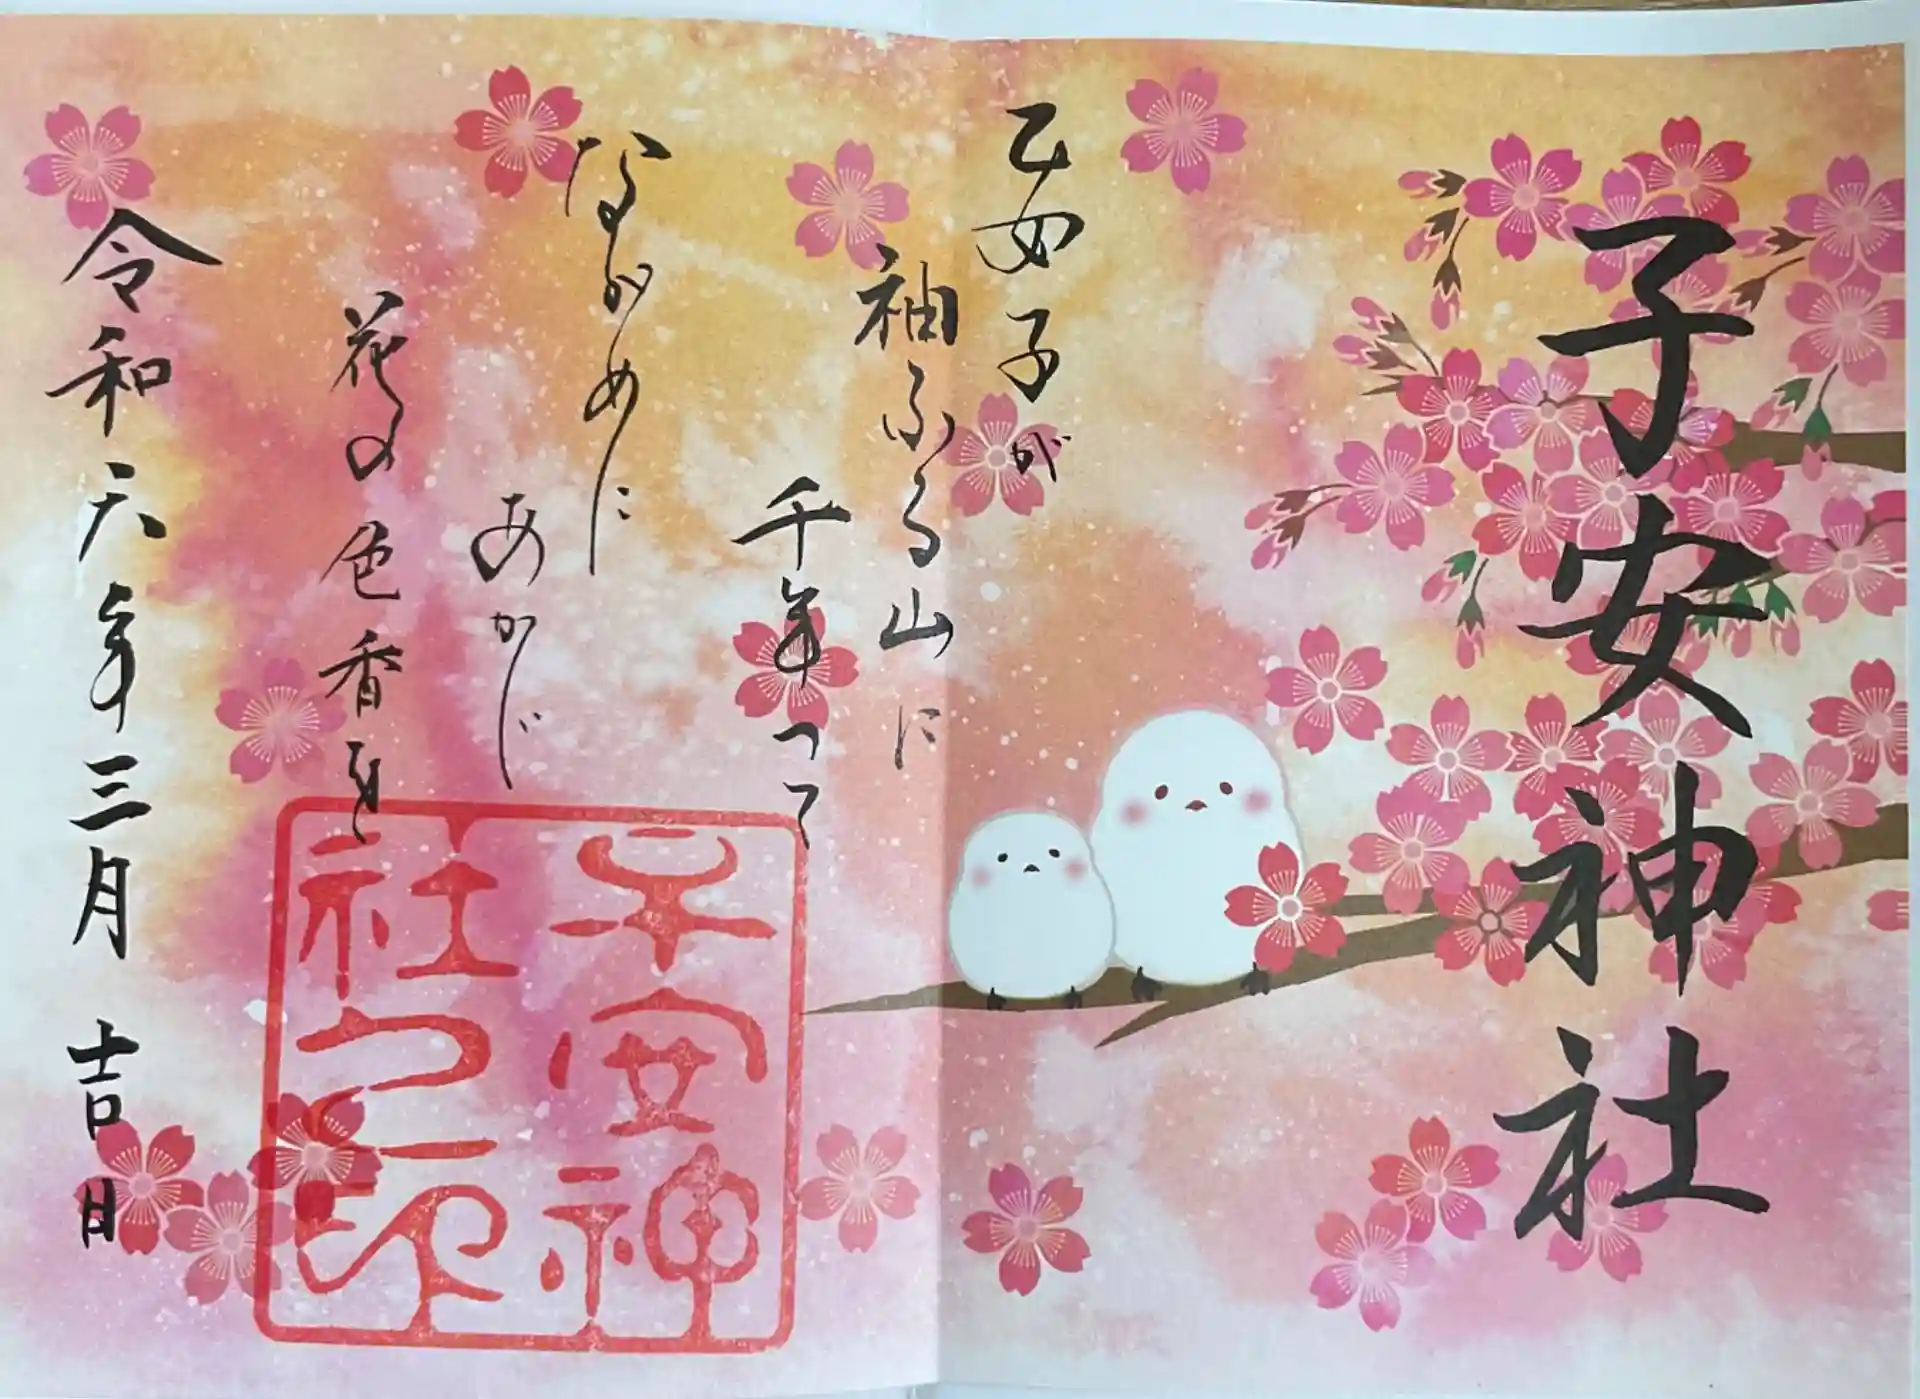 子安神社
乙女子が
袖ふる山に
千年へて
ながめに
あかじ
花の色香を
令和六年三月吉日
子安神
社之印